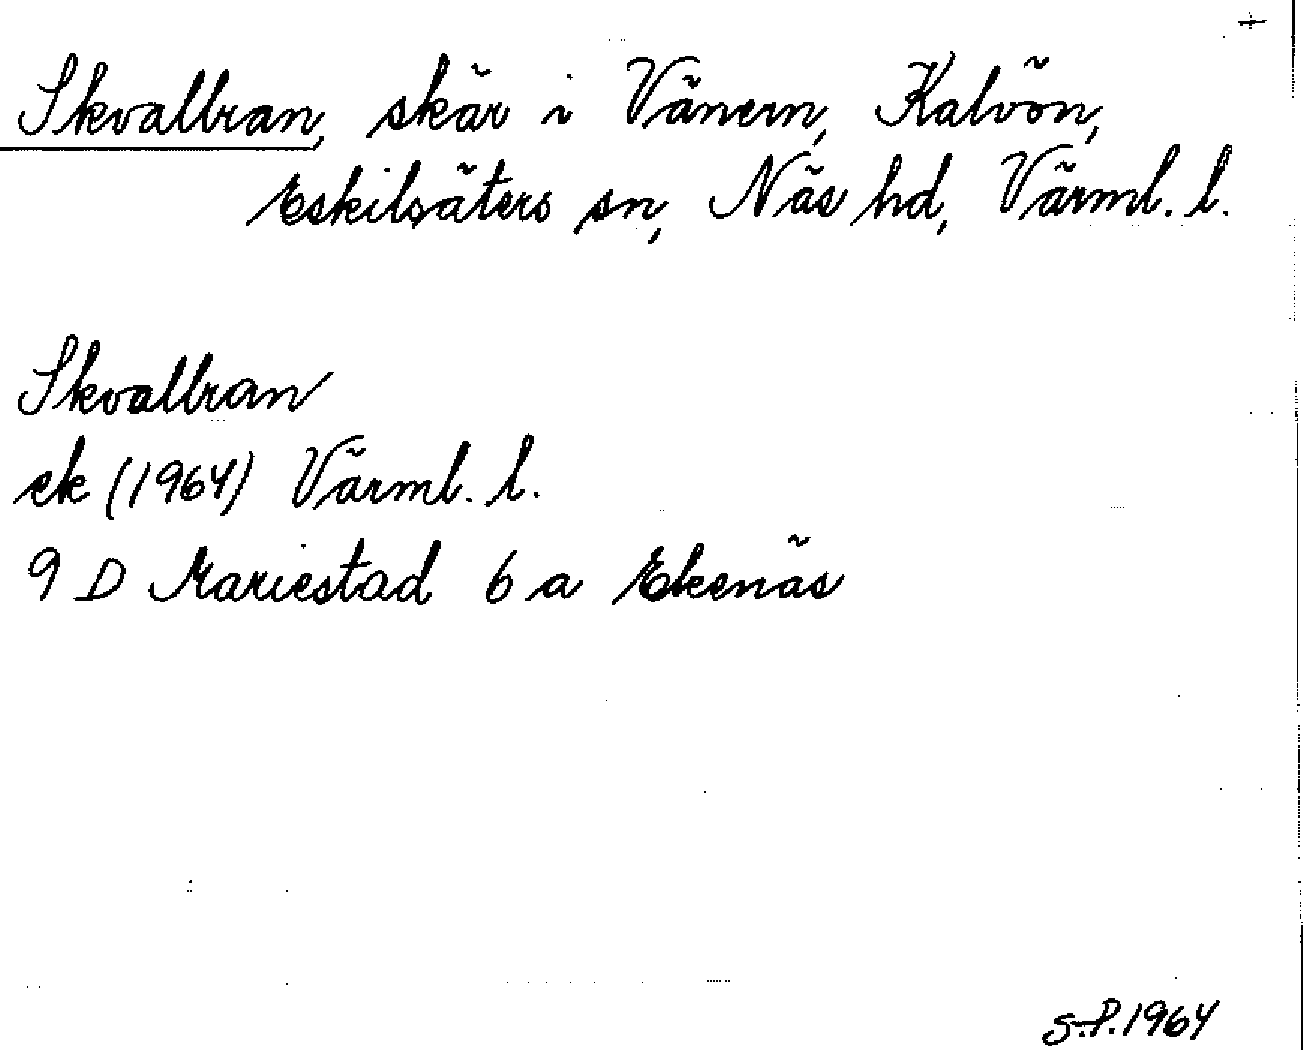 +
Skvallran, skär i Vänern, Kalvön,
Eskilsäters sn, Näs hd, Värml. l.
Skvallran
ek (1964) Värml. l.
9 D Mariestad 6 a Ekenäs
S.P. 1964